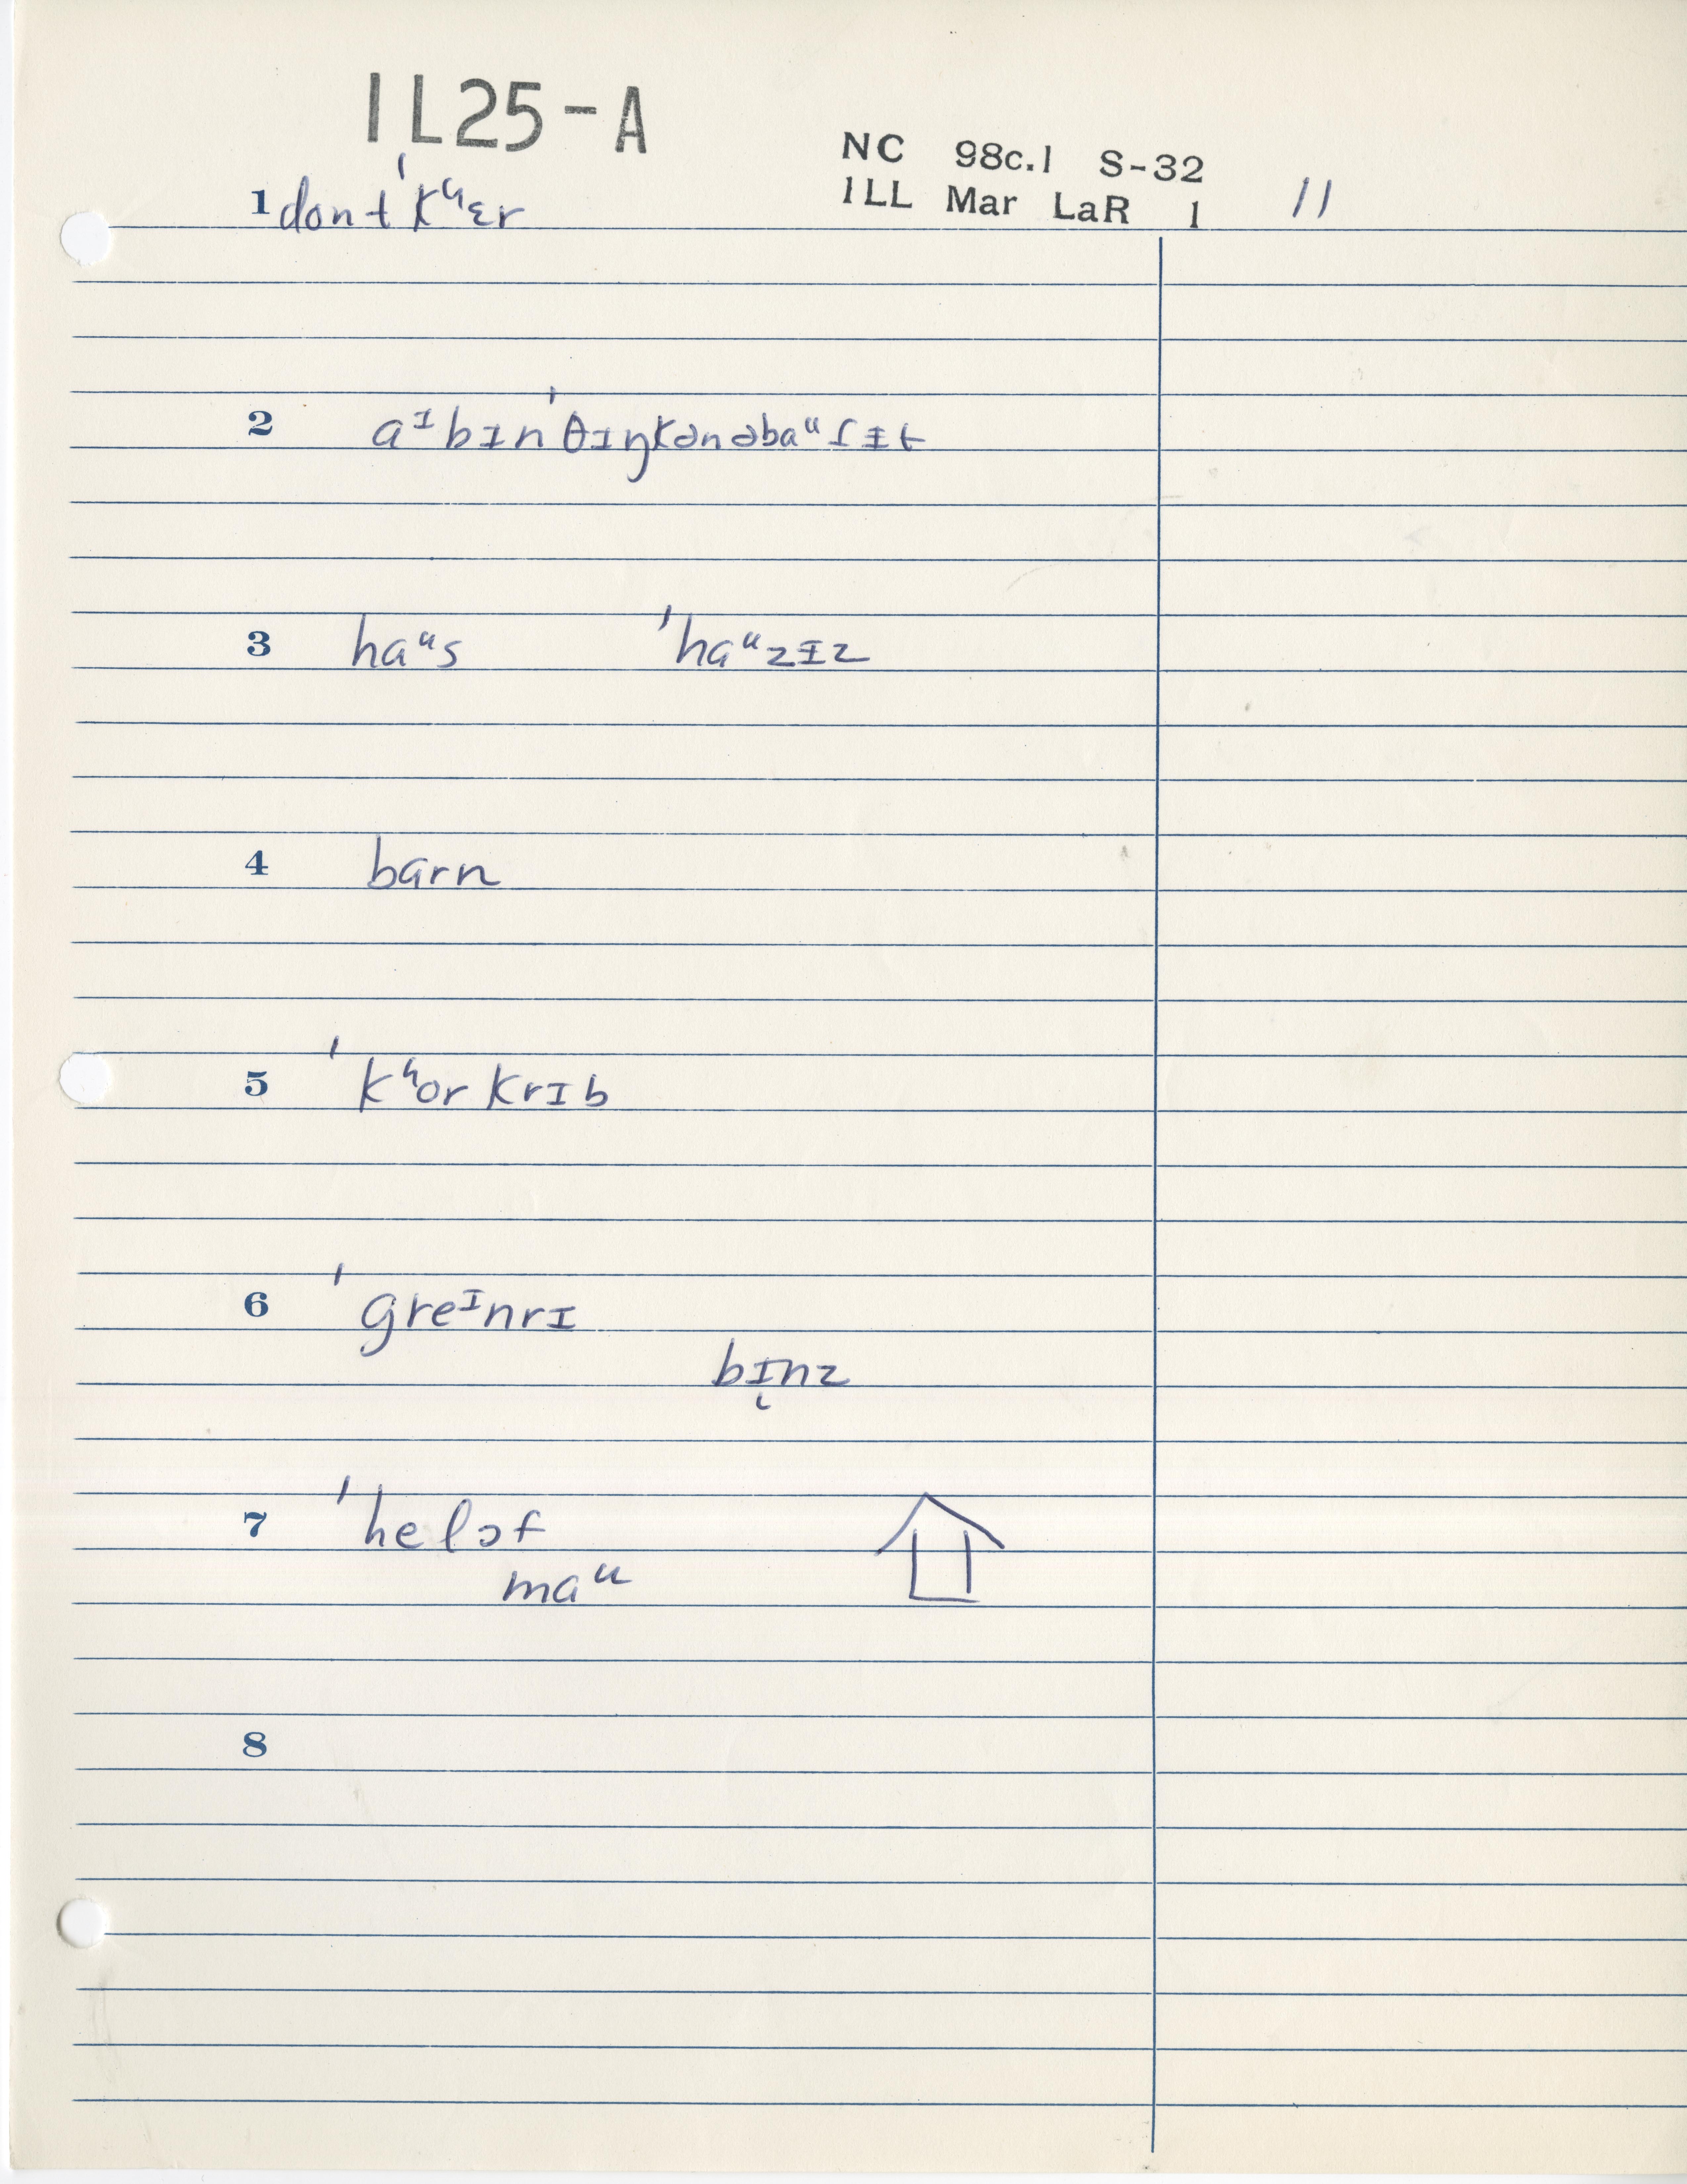 1L25-A
NC 98c.1 S-32
ILL Mar LaR 1 11
1 dont ˈkʰɛr
2 aᶦbɪnˈθɪŋkənəbaᵘɾᵻt
3 haᵘs ˈhaᵘzᵻz
4 barn
5 ˈkʰorkrɪb
6 ˈgreᶦnrɪ
bɪ̨nz
7 ˈhelɔf
maᵘ
8